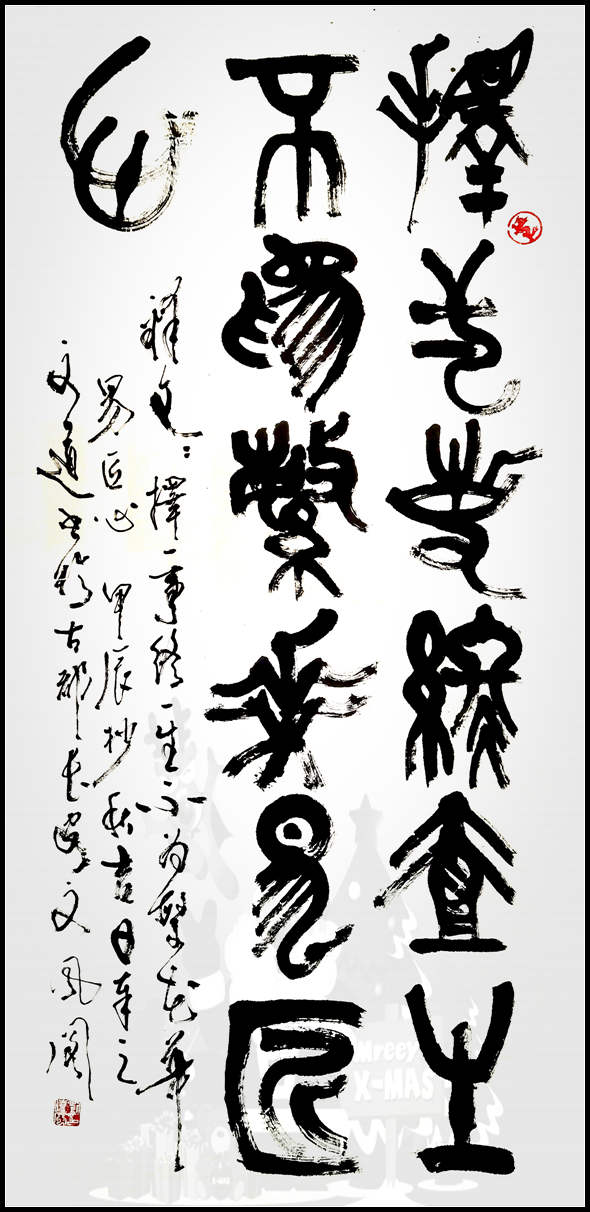 擇一事終壹生
不為繁華易匠
心
释文：擇一事終一生不为繁華
易匠心 甲辰杪秋吉日奉之
文道书於古都长安文風阁
Mreey
X-MAS